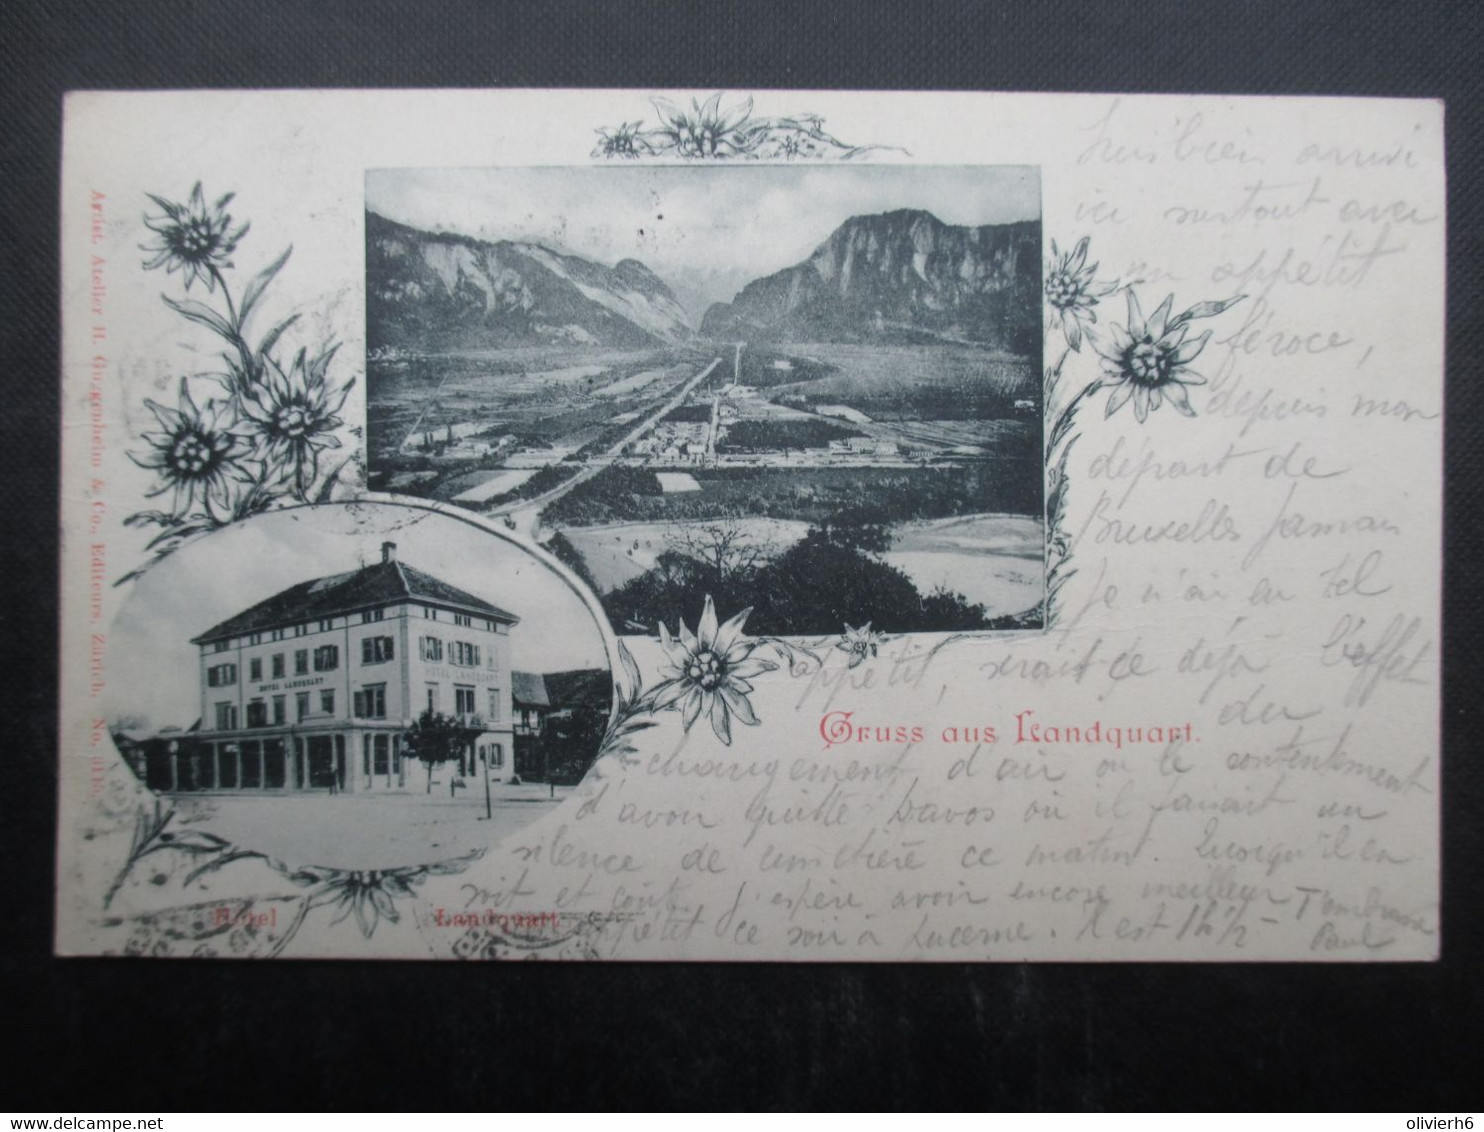 Artist. Atelier H. Guggenheim & Co., Editeurs, Zürich, No. 3116.
HOTEL LANDQUART
HOTEL LANDQUART
Gruss aus Landquart.
Hotel Landquart
Suis bien arrivé
ici surtout avec
un appétit
féroce,
depuis mon
départ de
Bruxelles Jamais
Je n'ai eu tel
appétit, serait ce déjà l'effet
du
changement d'air ou le contentement
d'avoir quitté Davos où il faisait un
silence de cimetière ce matin. Quoiqu'il en
soit et coûte. J'espère avoir encore meilleur
appétit ce soir à Lucerne. Il est 1h½ T'embrasse
Paul
olivierh6